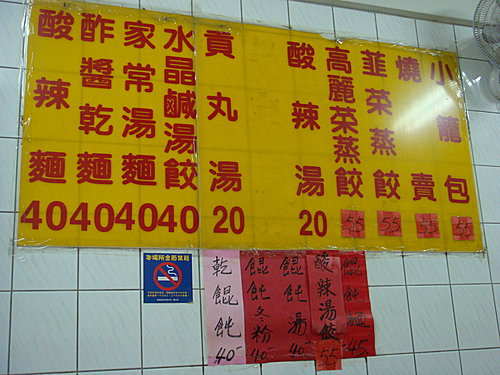 小籠包 55
燒賣 55
韮菜蒸餃 55
高麗菜蒸餃 55
酸辣湯 20
貢丸湯 20
水晶鹹湯餃 40
家常湯麵 40
酢醬乾麵 40
酸辣麵 40
餛飩麵 45-
酸辣湯餃 55-
餛飩湯 40-
餛飩冬粉 40-
乾餛飩 40-
本場所全面禁菸